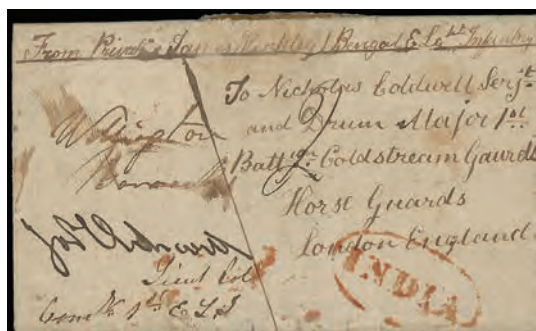 From Private James Hinkley 1 Bengal E Lght Infantry
To Nicholas Eoldwell Serjt
and Drum Major 1st
Battn Coldstream Gaurds
Horse Guards
London England
INDIA
Wellington
Barracks
Lieut Col
Comg 1st E L I